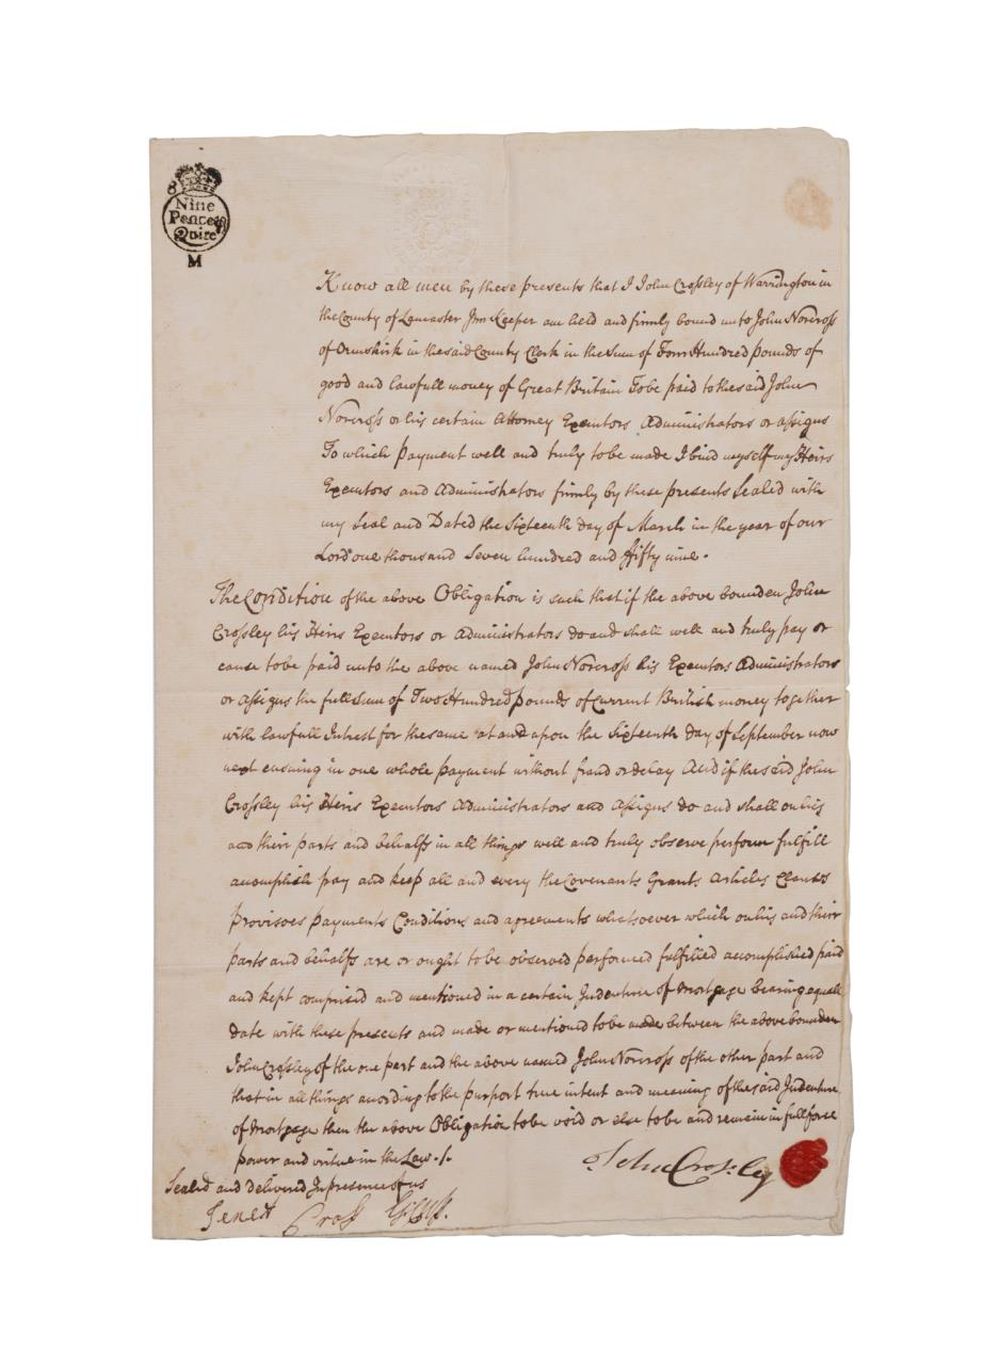 Nine
Pence p
Quire
M
Know all men by these presents that I John Crossley of Warrington in
the County of Lancaster Inn Keeper am held and firmly bound unto John Norcross
of Ormskirk in the said County Clerk in the Sum of Four Hundred pounds of
good and lawfull money of Great Britain To be paid to the said John
Norcross or his certain Attorney Executors Administrators or assigns
To which payment well and truly to be made I bind myself my Heirs
Executors and Administrators firmly by these presents Sealed with
my Seal and Dated the Sixteenth day of March in the year of our
Lord one thousand Seven hundred and fifty nine.
The Condition of the above Obligation is such that if the above bounden John
Crossley his Heirs Executors or Administrators do and shall well and truly pay or
cause to be paid unto the above named John Norcross his Executors Administrators
or assigns the full Sum of Two Hundred pounds of Current British money together
with lawfull Intrest for the same at and upon the Sixteenth day of September now
next ensuing in one whole payment without fraud or delay And if the said John
Crossley his Heirs Executors Administrators and assigns do and shall on his
and their parts and behalfs in all things well and truly observe perform fulfill
acomplish pay and keep all and every the Covenants Grants articles Clauses
provisoes payments Conditions and agreements whatsoever which on his and their
parts and behalfs are or ought to be observed performed fulfilled acomplished paid
and kept comprised and mentioned in a certain Indenture of Mortgage bearing equall
date with these presents and made or mentioned to be made between the above bounden
John Crossley of the one part and the above named John Norcross of the other part and
that in all things acording to the purport true intent and meaning of the said Indenture
of Mortgage then the above Obligation to be void or else to be and remain in full force
power and virtue in the Law.
John Crossley
Sealed and delivered In presence of us
Cross